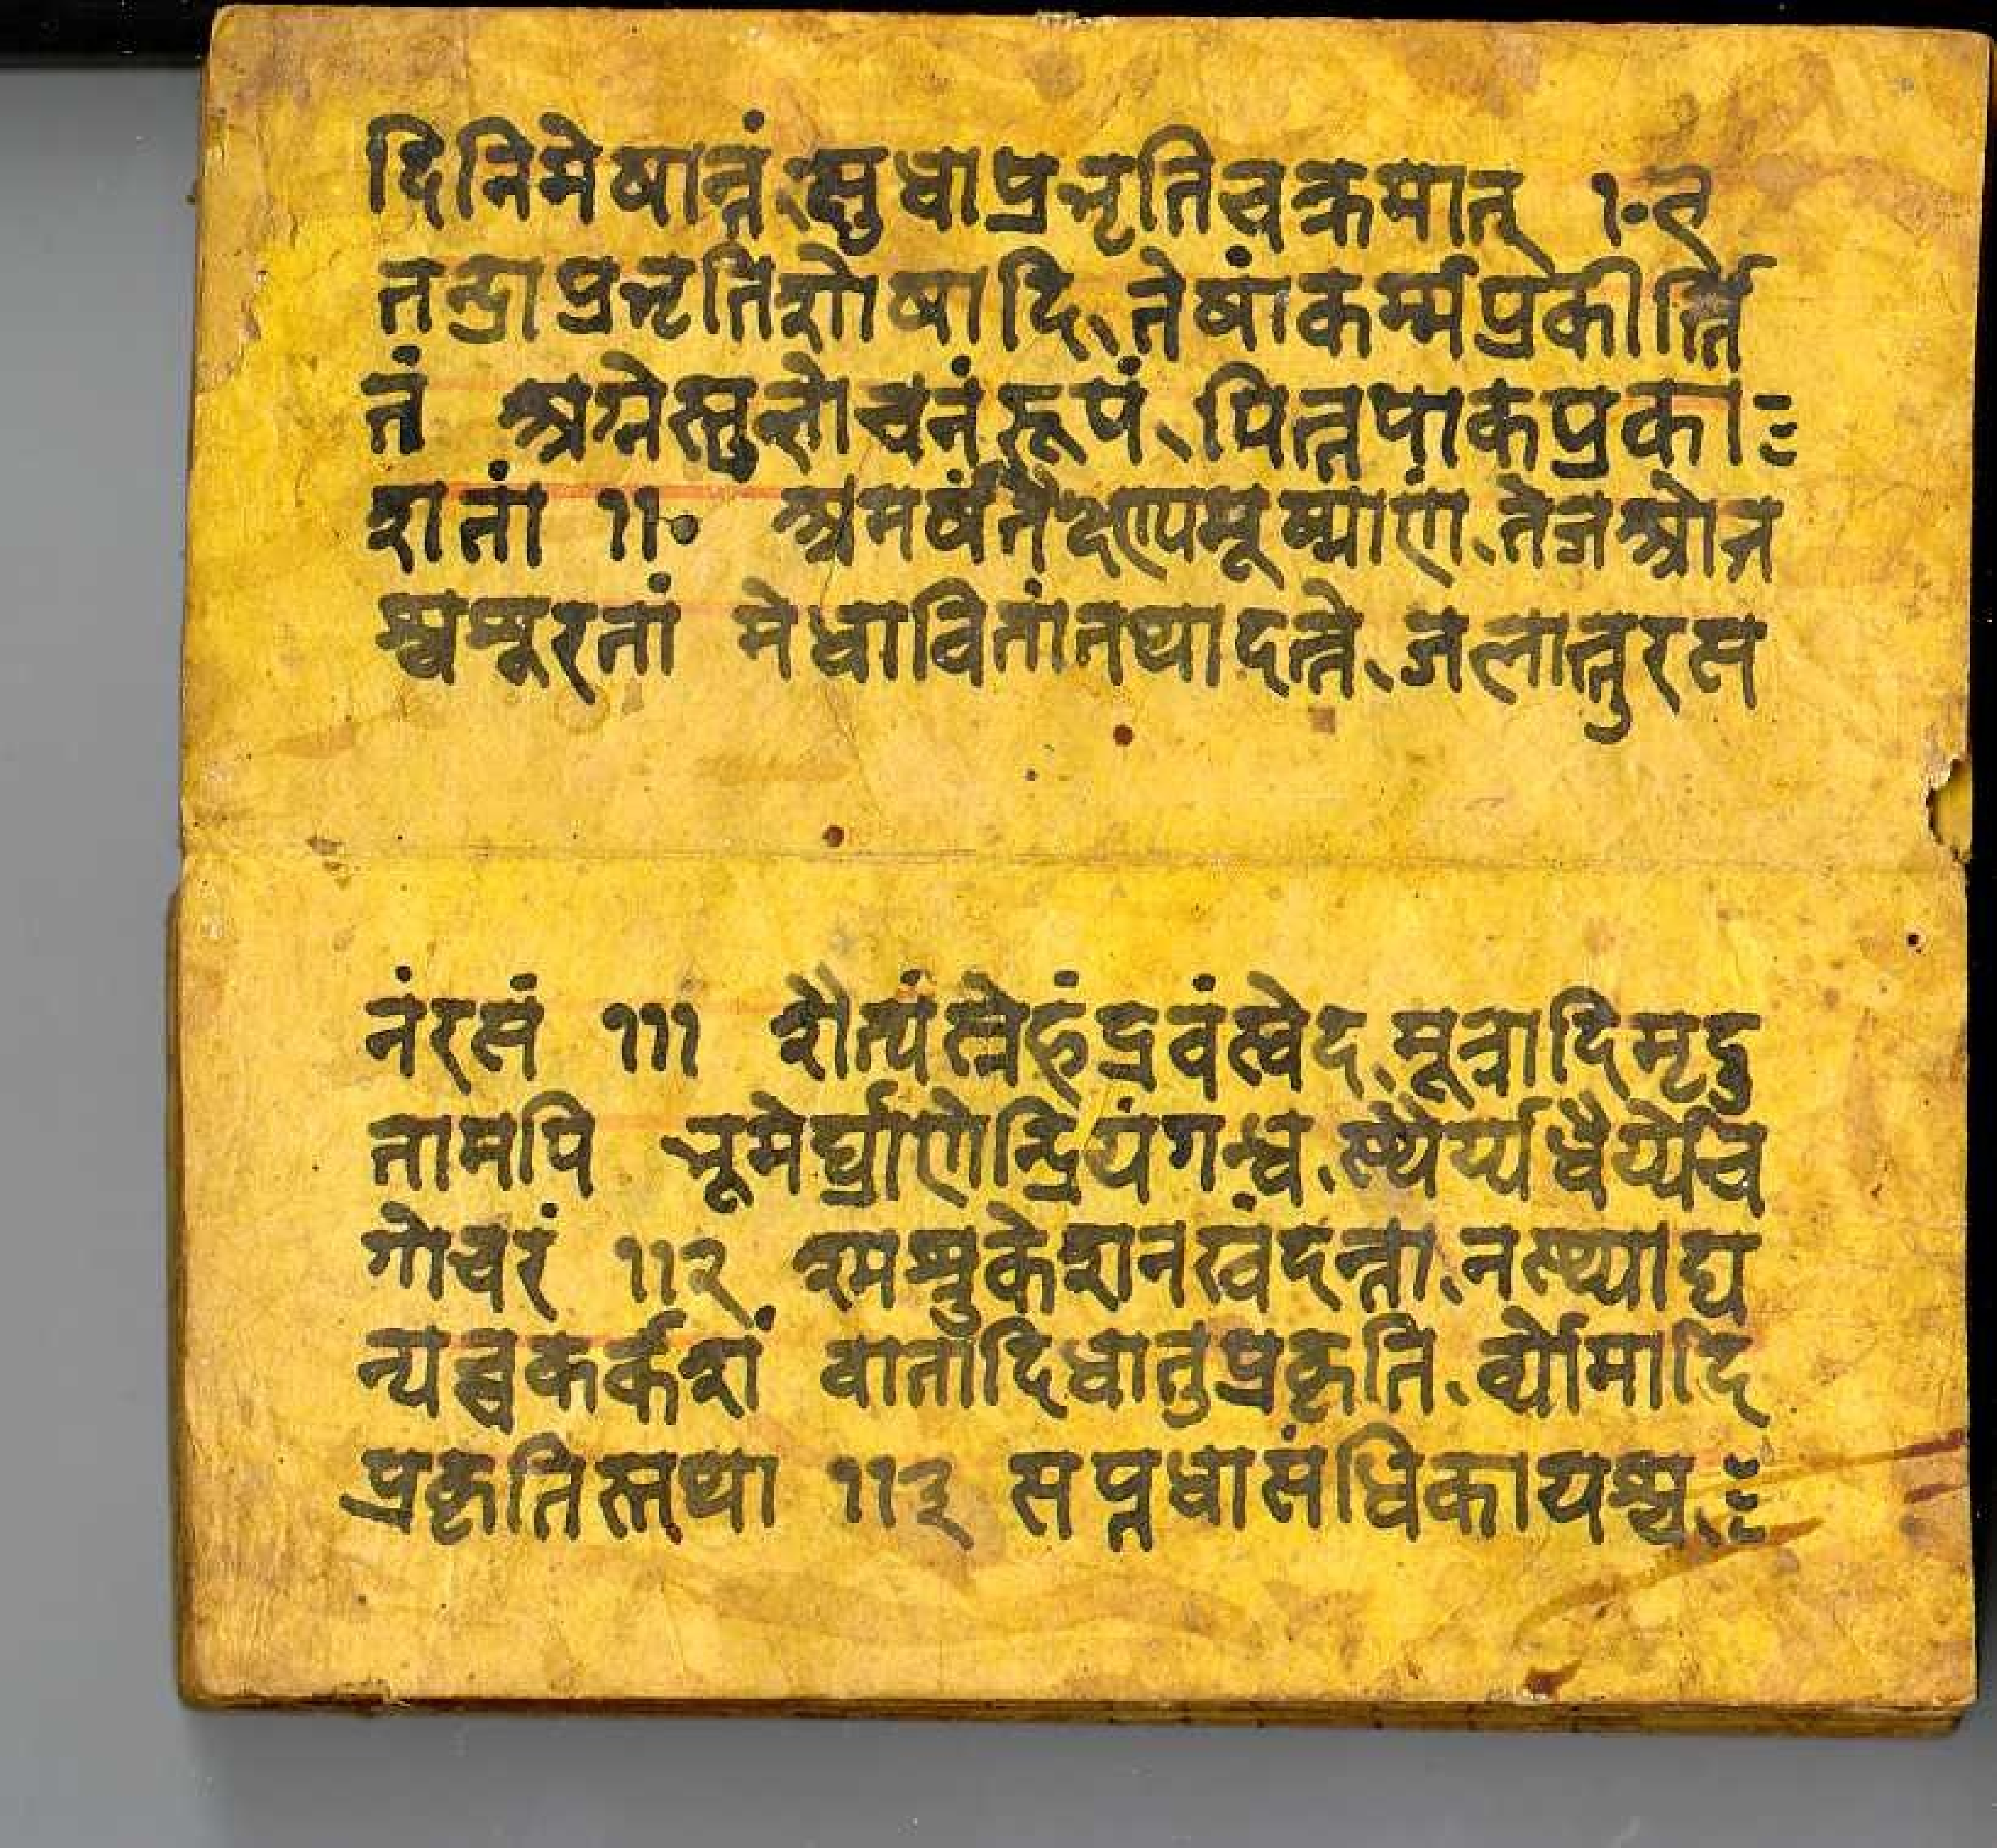 दिनिमेषान्तं क्षुधाप्रभृतिचक्रमात् १०९
तन्द्राप्रभृतिशोषादि、तेषांकर्म्मप्रकीर्त्ति
तं अग्नेस्तुलोचनंरूपं、पित्तपाकप्रका
शतां ११० अमर्षतैक्ष्ण्यमूष्माणं、तेजश्चोज
श्चशूरतां मेधावितांतथादत्ते、जलात्तुरस
नंरसं १११ शैत्यंस्नेहंद्रवंस्वेद、मूत्रादिमृदु
तामपि भूमेर्घ्राणेन्द्रियंगन्धं、स्थैर्य्यधैर्य्येच
गोचरं ११२ श्मश्रुकेशनखंदन्ता、नस्थ्याद्य
न्यच्चकर्कशं वातादिधातुप्रकृति、र्व्योमादि
प्रकृतिस्तथा ११३ सप्तधासंधिकायश्च、